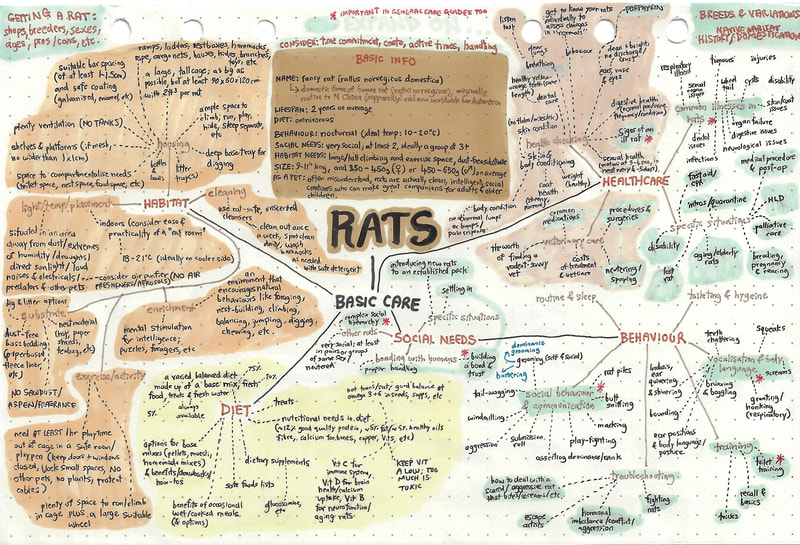 GETTING A RAT:
shops, breeders, sexes,
ages, pros/cons, etc
* IMPORTANT IN GENERAL CARE GUIDES TOO
CONSIDER: time commitment, costs, active times, handling
BASIC INFO
NAME: fancy rat (rattus norvegicus domestica)
LIFESPAN: 2 years on average
DIET: omnivorous
BEHAVIOUR: nocturnal (ideal temp: 10-20°C)
SOCIAL NEEDS: very social, at least 2, ideally a group of 3+
HABITAT NEEDS: large/tall climbing and exercise space, dust-free substrate
SIZE: 9-11" long, and 350-450g (♀) or 450-650g (♂) on average
AS A PET: often misunderstood, rats are usually clean, intelligent, social
creatures who can make great companions for adults & older
children.
BREEDS & VARIATIONS
NATIVE HABITAT
HISTORY/DOMESTICATION
RATS
BASIC CARE
HABITAT
housing
suitable bar spacing
(of at least <1.5cm)
and safe coating
(galvanised, enamel, etc)
ramps, ladders, nestboxes, hammocks,
rope, carpet nets, houses, hides, tunnels,
etc
a large, tall cage, as big as
possible but at least 90x60x120cm
with 2ft³ per rat
ample space to
climb, run, play,
hide, sleep separate,
etc
plenty ventilation (NO TANKS)
shelves & platforms (if mesh,
no wider than 1x1cm)
space to compartmentalise needs
(toilet space, nest space, food space, etc)
bottles
bowls
litter
tray(s)
deep base tray for
digging
cleaning
use rat-safe, unscented
cleansers
clean out once
a week, spot clean
daily, wash
hammocks
as needed with safe detergent
light/temp/placement
indoors (consider ease &
practicality of a "rat room"
situated in an area
away from dust/extremes
of humidity/draughts/
direct sunlight/loud
noises & electricals/
predators & other pets
18-21°C (ideally on cooler side)
consider air purifier (NO AIR
FRESHENERS/AEROSOLS)
substrate
bag & litter options
dust-free
base bedding
(paper based,
fleece liner,
etc)
nest material
(hay, paper
shreds,
teabag, etc)
NO SAWDUST/
ASPEN/FRAGRANCE
enrichment
an environment that
encourages natural
behaviours like foraging,
nest-building, climbing,
balancing, jumping, digging,
chewing, etc
mental stimulation
for intelligence;
puzzles, foragers, etc
exercise/activity
need AT LEAST 1hr playtime
out of cage in a safe room/
playpen (keep doors + windows
closed, block small spaces, NO
other pets, no plants, protect
cables)
plenty of space to run/climb
in cage plus a large suitable
wheel
DIET
a varied balanced diet
made up of a base mix, fresh
food, treats & fresh water
always
available
75%
20%
5%
treats
options for base
mixes (pellets, muesli,
homemade mixes)
& benefits/drawbacks/
how-tos
dietary supplements
safe foods lists
benefits of occasional
wet/cooked meals
(& options)
glucosamine,
etc
nutritional needs in diet
not trans/sat/good balance of
omega 3+6 in seeds, nuts, etc
Vit C for
immune system,
Vit D for brain
health/calcium
uptake, Vit B
for neurofunction/
aging rats.
KEEP VIT
A LOW; TOO
MUCH IS
TOXIC
SOCIAL NEEDS
specific situations
introducing new rats
to an established pack
settling in
other rats
complex social
hierarchy *
very social; at least
in pairs or groups
of same sex/
neutered
bonding with humans
proper handling
building
a bond &
trust
HEALTHCARE
health checking
get to know your rats
individually to assess
changes
PORPHYRIN
listen
test
clear
lungs/
breathing
behaviour
clean & bright,
no discharge/
crust
ears, nose
& eyes
healthy yellow-
orange teeth (same
length)
dental
care
skin condition
skin &
body conditioning
coat
health
weight (healthy)
body condition
no abnormal lumps
or bumps/
pain response
digestive health
(normal poo/wee,
frequency/condition)
signs of an
ill rat *
sexual health
veterinary care
common
medications
procedures &
surgeries
the worth
of finding a
rodent-savvy
vet
costs
of treatment
& vetcare
neutering/
spaying
common illnesses in
rats *
respiratory
illness
tumours
injuries
sexual organ
issues
wheel
tail
cysts
disability
skin/coat
issues
organ failure
digestive issues
neurological issues
dental
issues
infections
specific situations
medical procedure
& post-op
first aid/
CPR
intros/quarantine
HLD
palliative
care
disability
aging/elderly
rats
breeding,
pregnancy
& rearing
lost rat
BEHAVIOUR
routine & sleep
toileting & hygeine
social behaviour
& communication *
dominance
grooming
grooming (self & social)
barbering
rat piles
tail-wagging
butt
sniffing
windmilling
marking
aggression
submission
roll
play-fighting
asserting dominance/rank
vocalisation & body
language *
teeth
chattering
squeaks
screams
bruxing &
boggling
grunting/
honking
(respiratory)
body,
ear
quivering &
shivering
bounding
ear positions
& body language/
posture
training
toilet
training
recall &
basics
tricks
troubleshooting
how to deal with a
scared/aggressive rat
that bites/screams/etc.
escape
artists
hormonal
imbalance/conflict/
aggression
fighting
rats